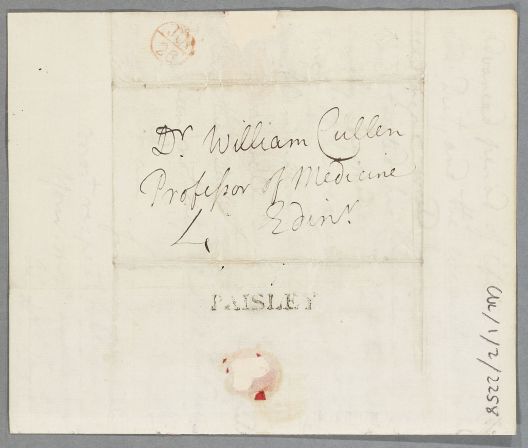 Dr. William Cullen
Profeſsor of Medicine
Edinr.
PAISLEY
CUL/1/2/2258